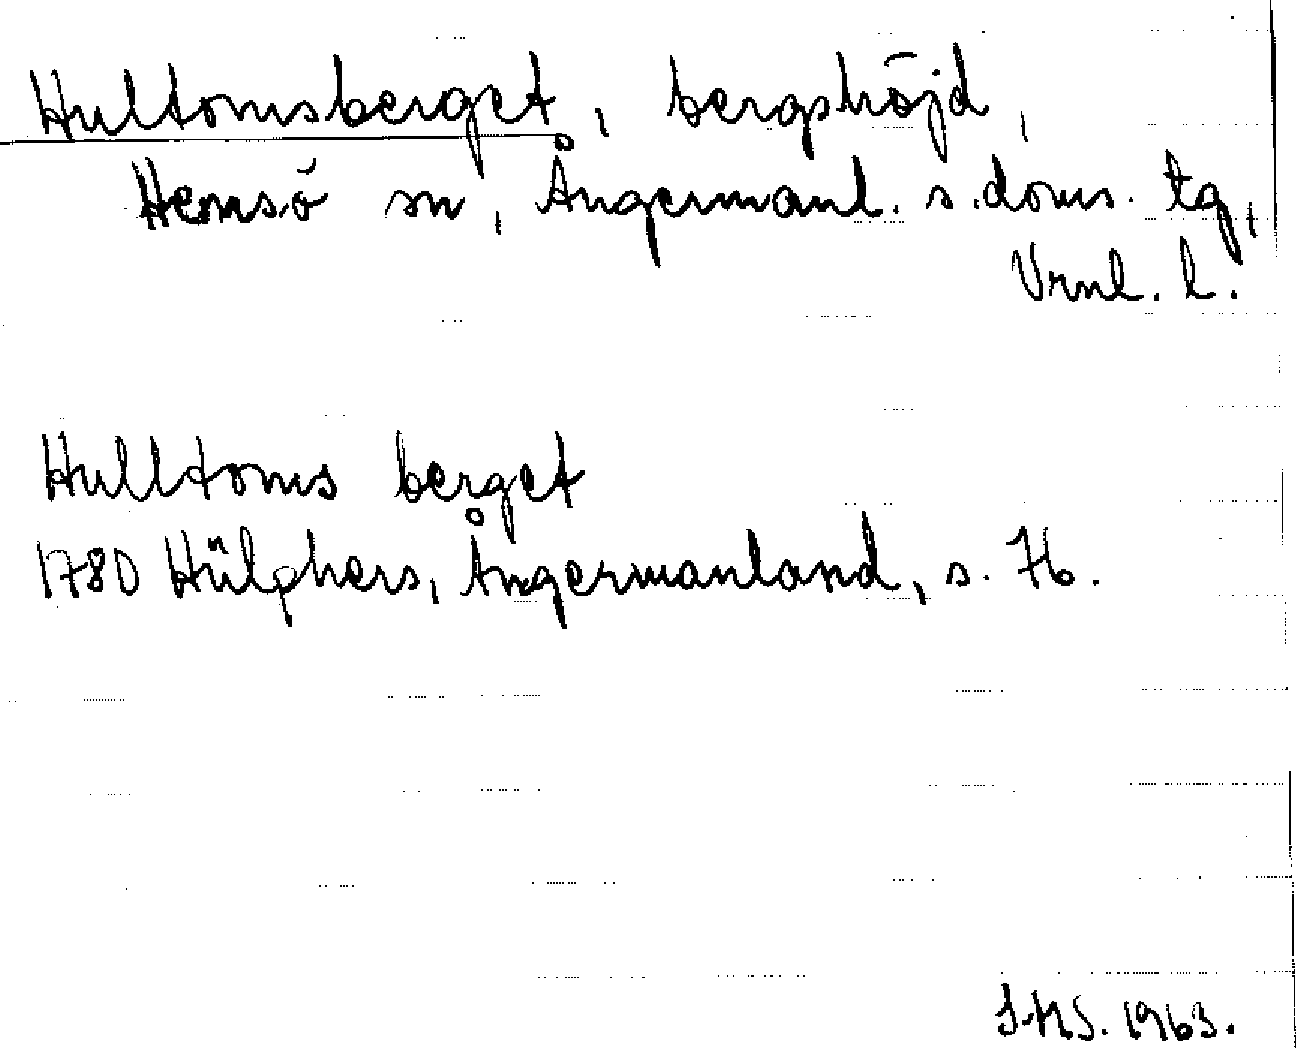 Hultomsberget, bergshöjd,
Hemsö sn, Ångermanl. s. doms. tg,
Vrnl. l.
Hulltoms berget
1780 Hülphers, Ångermanland, s. 76.
1963.